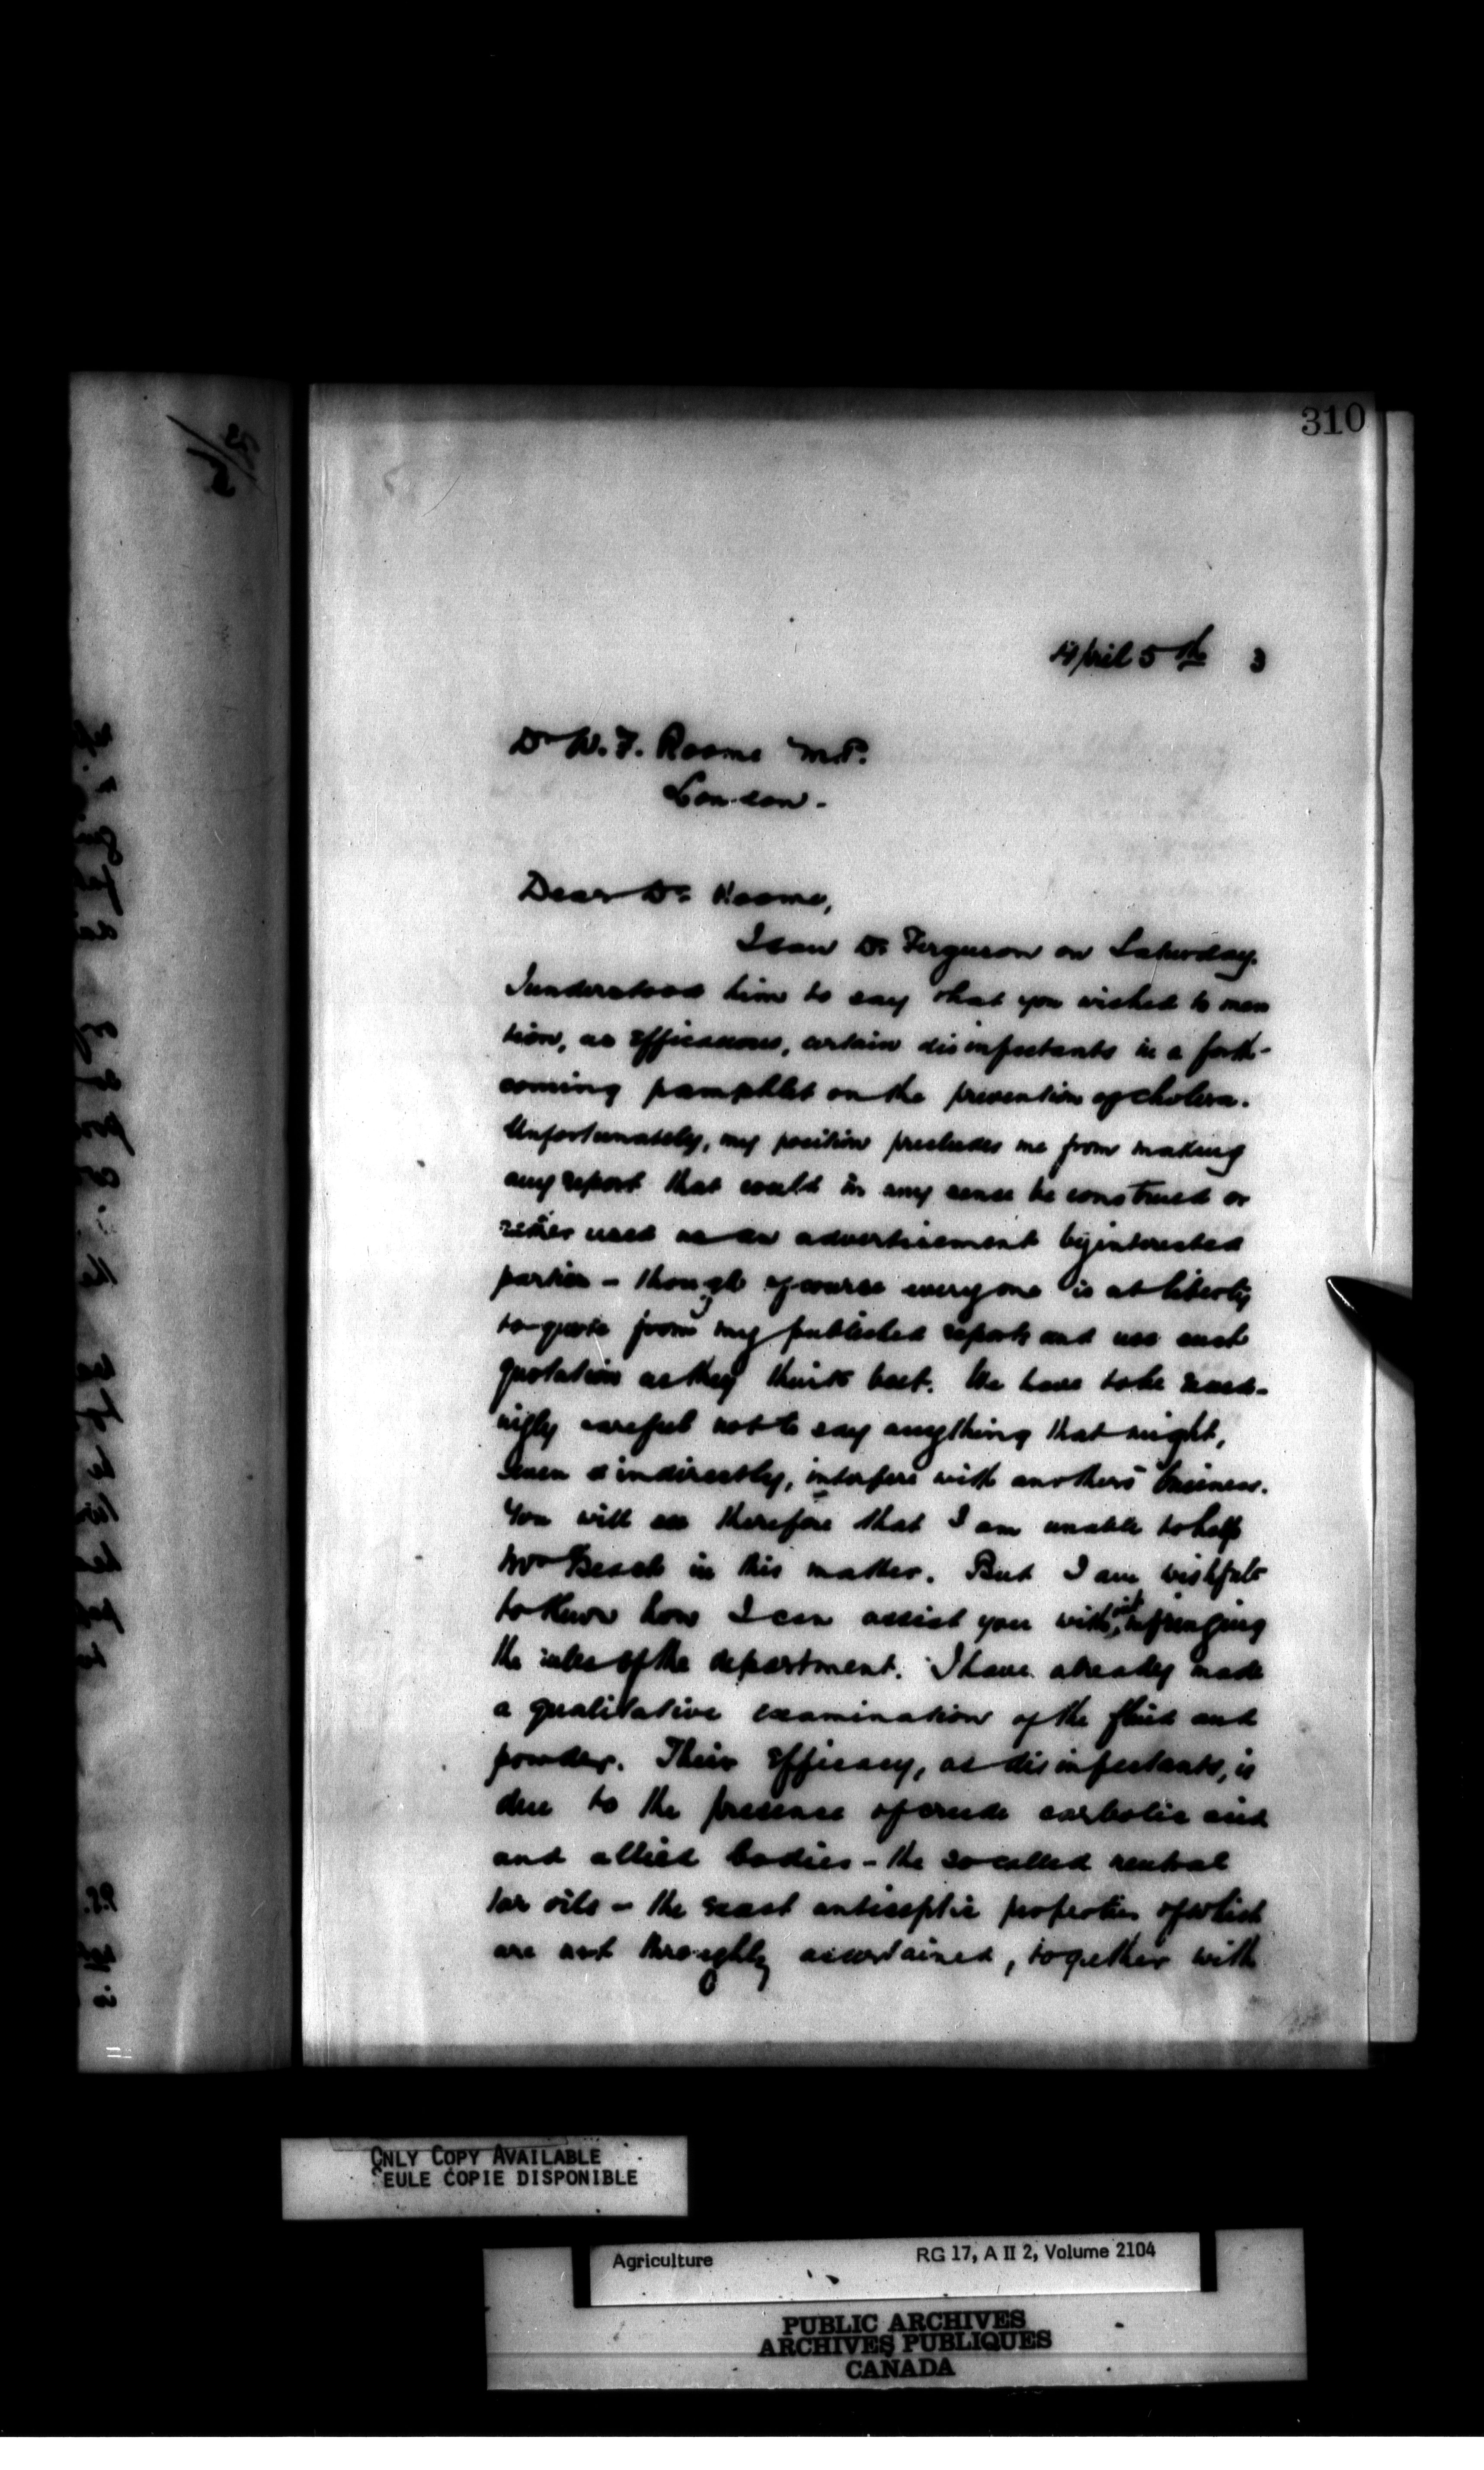 310
April 5th 3
Dr W. F. Roome M.P.
London.
Dear Dr Roome,
I saw Dr Ferguson on Saturday.
I understood him to say that you wished to men
tion, as efficacious, certain disinfectants in a forth-
coming pamphlet on the prevention of cholera.
Unfortunately, my position precludes me from making
any report that could in any sense be construed or
used as an advertisement by interested
parties - though of course everyone is at liberty
to quote from my published reports and use such
quotation as they think best. We have to be exceed-
ingly careful not to say anything that might,
even indirectly, interfere with anothers business.
You will see therefore that I am unable to help
Mr Beach in his matter. But I am wishful
to know how I can assist you without infringing
the rules of the department. I have already made
a qualitative examination of the fluid and
powder. Their efficacy, as disinfectants, is
due to the presence of crude carbolic acid
and allied bodies - the so called neutral
tar oils - the exact antiseptic properties of which
are not throughly ascertained, together with
ONLY COPY AVAILABLE
EULE COPIE DISPONIBLE
Agriculture RG 17, A II 2, Volume 2104
PUBLIC ARCHIVES
ARCHIVES PUBLIQUES
CANADA